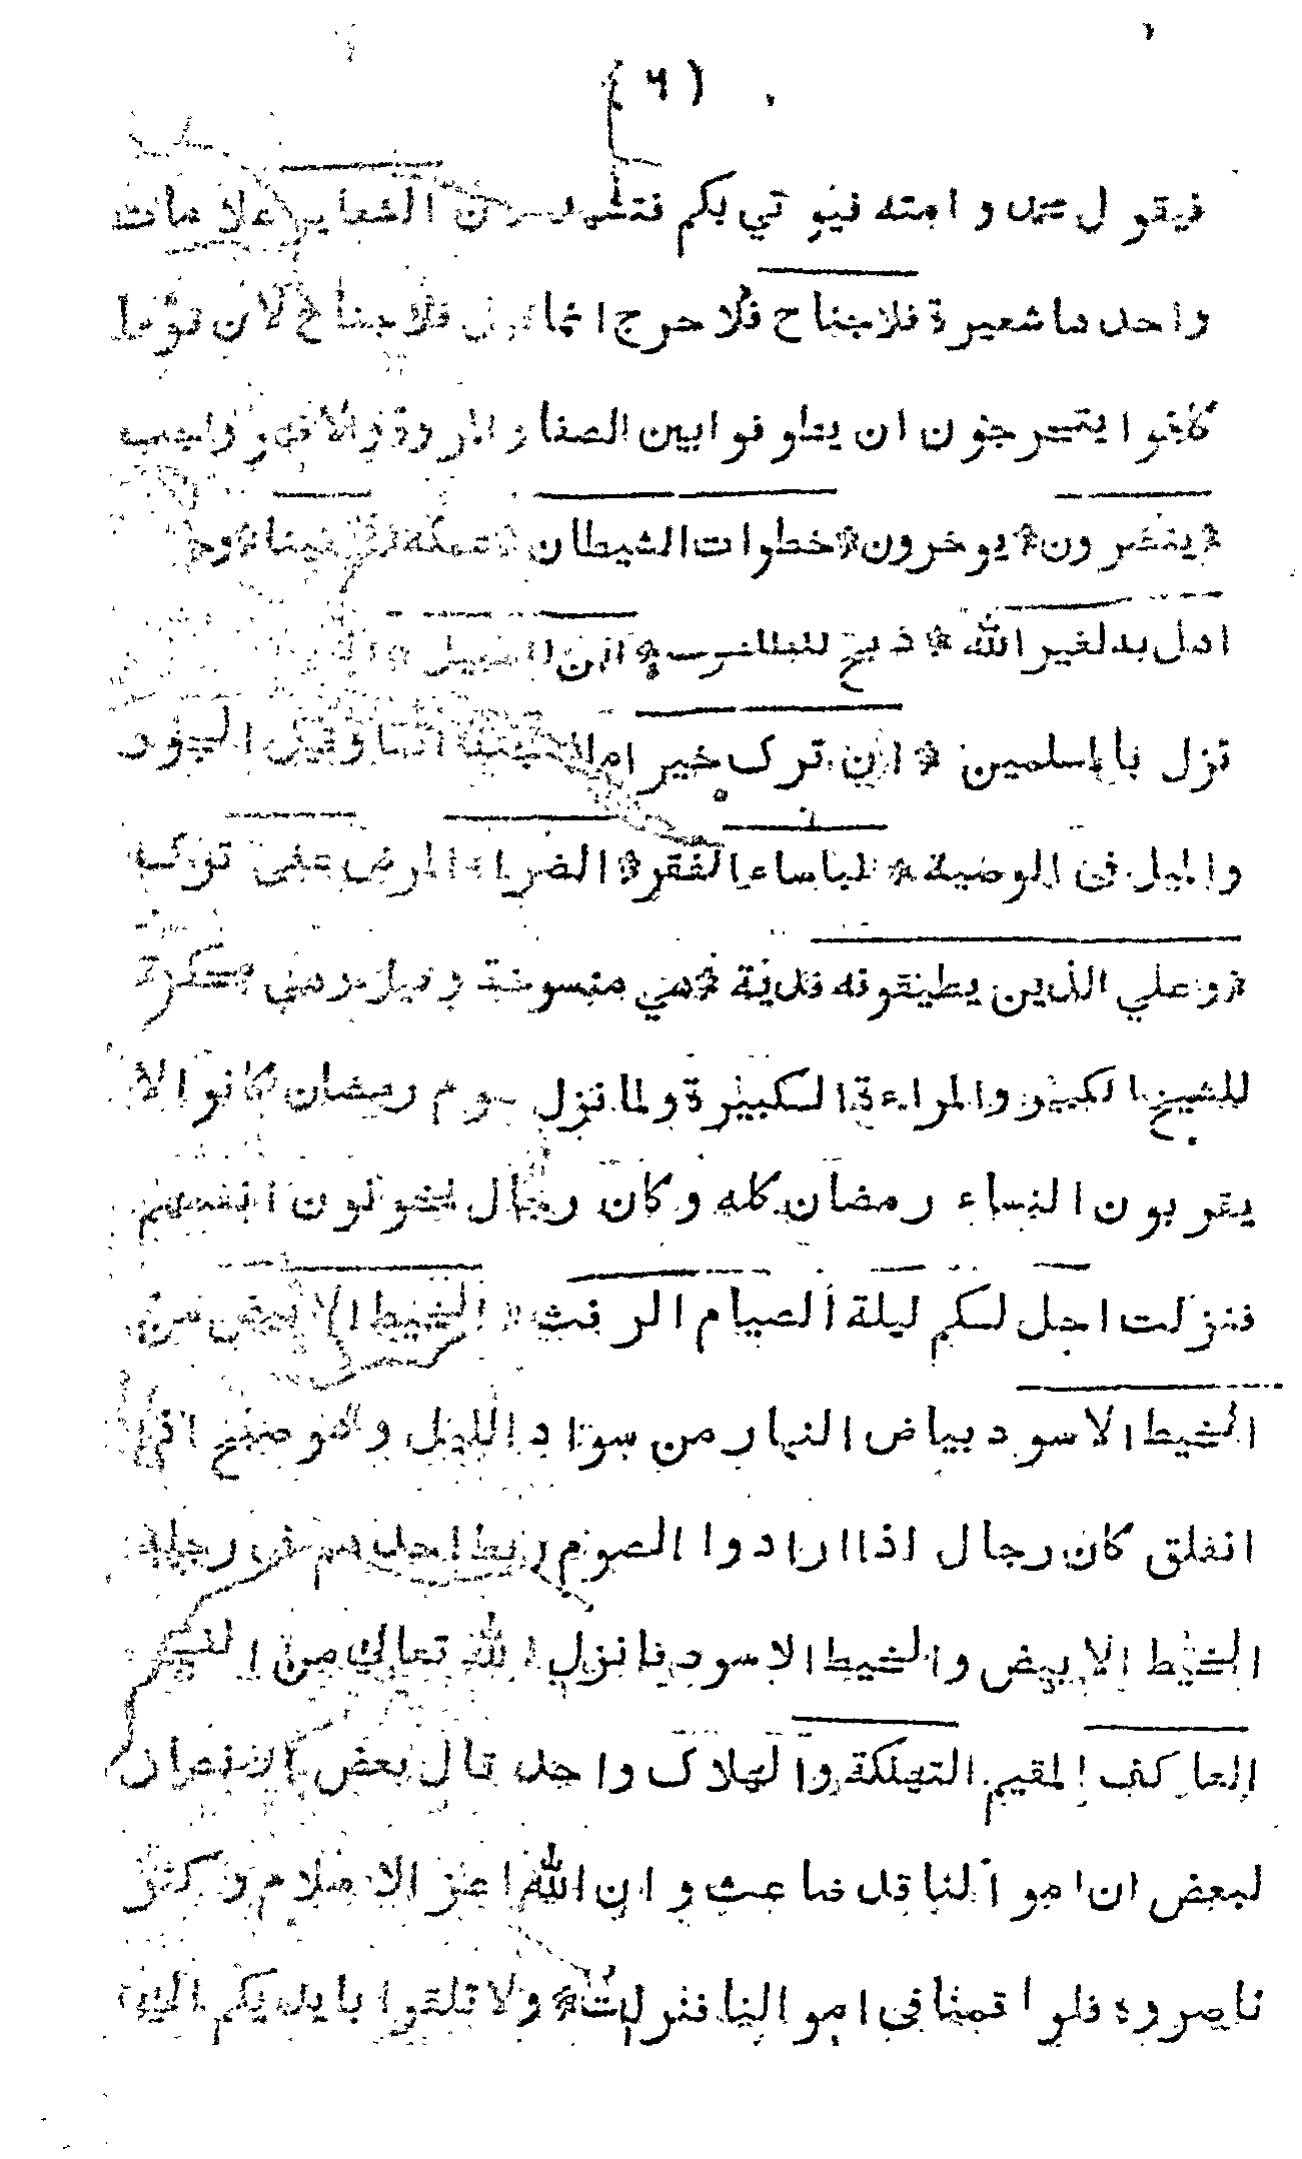 (٦)
فيقول محمد وامته فيوتي بكم فتشهدون الشعاير علامات
واحدها شعيرة فلاجناح فلا حرج انما فلاجناح لان قوما
كانوا يتحرجون ان يطوفوا بين الصفا والمروة والا فهو واجب
*ينظرون*يوخرون*خطوات الشيطان*
اهل به لغير الله*ذبح للطواغيت*ابن السبيل*
نزل بالمسلمين*ان ترك خيرا مالا جنفا اثما وقيل الجور
والميل فى الوصية*الباساء الفقر*الضراء المرض علي ترك
*وعلي الذين يطيقونه فدية*هي منسوخة وقيل هي محكمة
للشيخ الكبير والمراءة الكبيرة ولما نزل صوم رمضان كانوا لا
يقربون النساء رمضان كله وكان رجال يخونون انفسهم
فنزلت احل لكم ليلة الصيام الرفث*الخيط الابيض من
الخيط الاسود بياض النهار من سواد الليل وهو صبح اذا
انفلق كان رجال اذا ارادوا الصوم ربط احدهم فى رجليه
الخيط الابيض والخيط الاسود فانزل الله تعالي من الفجر
العاكف المقيم التهلكة والهلاك واحد قال بعض الانصار
لبعض ان اموالنا قد ضاعت وان الله اعز الاسلام وكثر
ناصروه فلو اقمنا فى اموالنا فنزلت*ولا تلقوا بايديكم الي